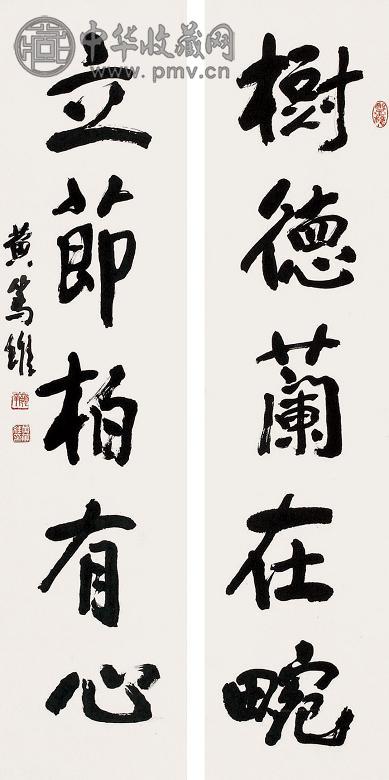 中华收藏网
www.pmv.cn
樹德蘭在畹
立節柏有心
黄篤維